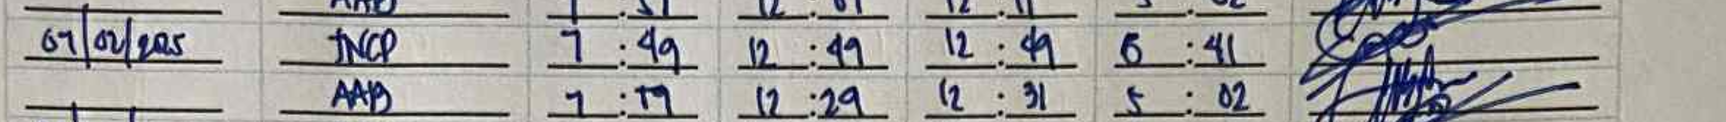 07/02/2025 JNCP 7:49 12:49 12:49 6:41
AAB 7:19 12:29 12:31 5:02